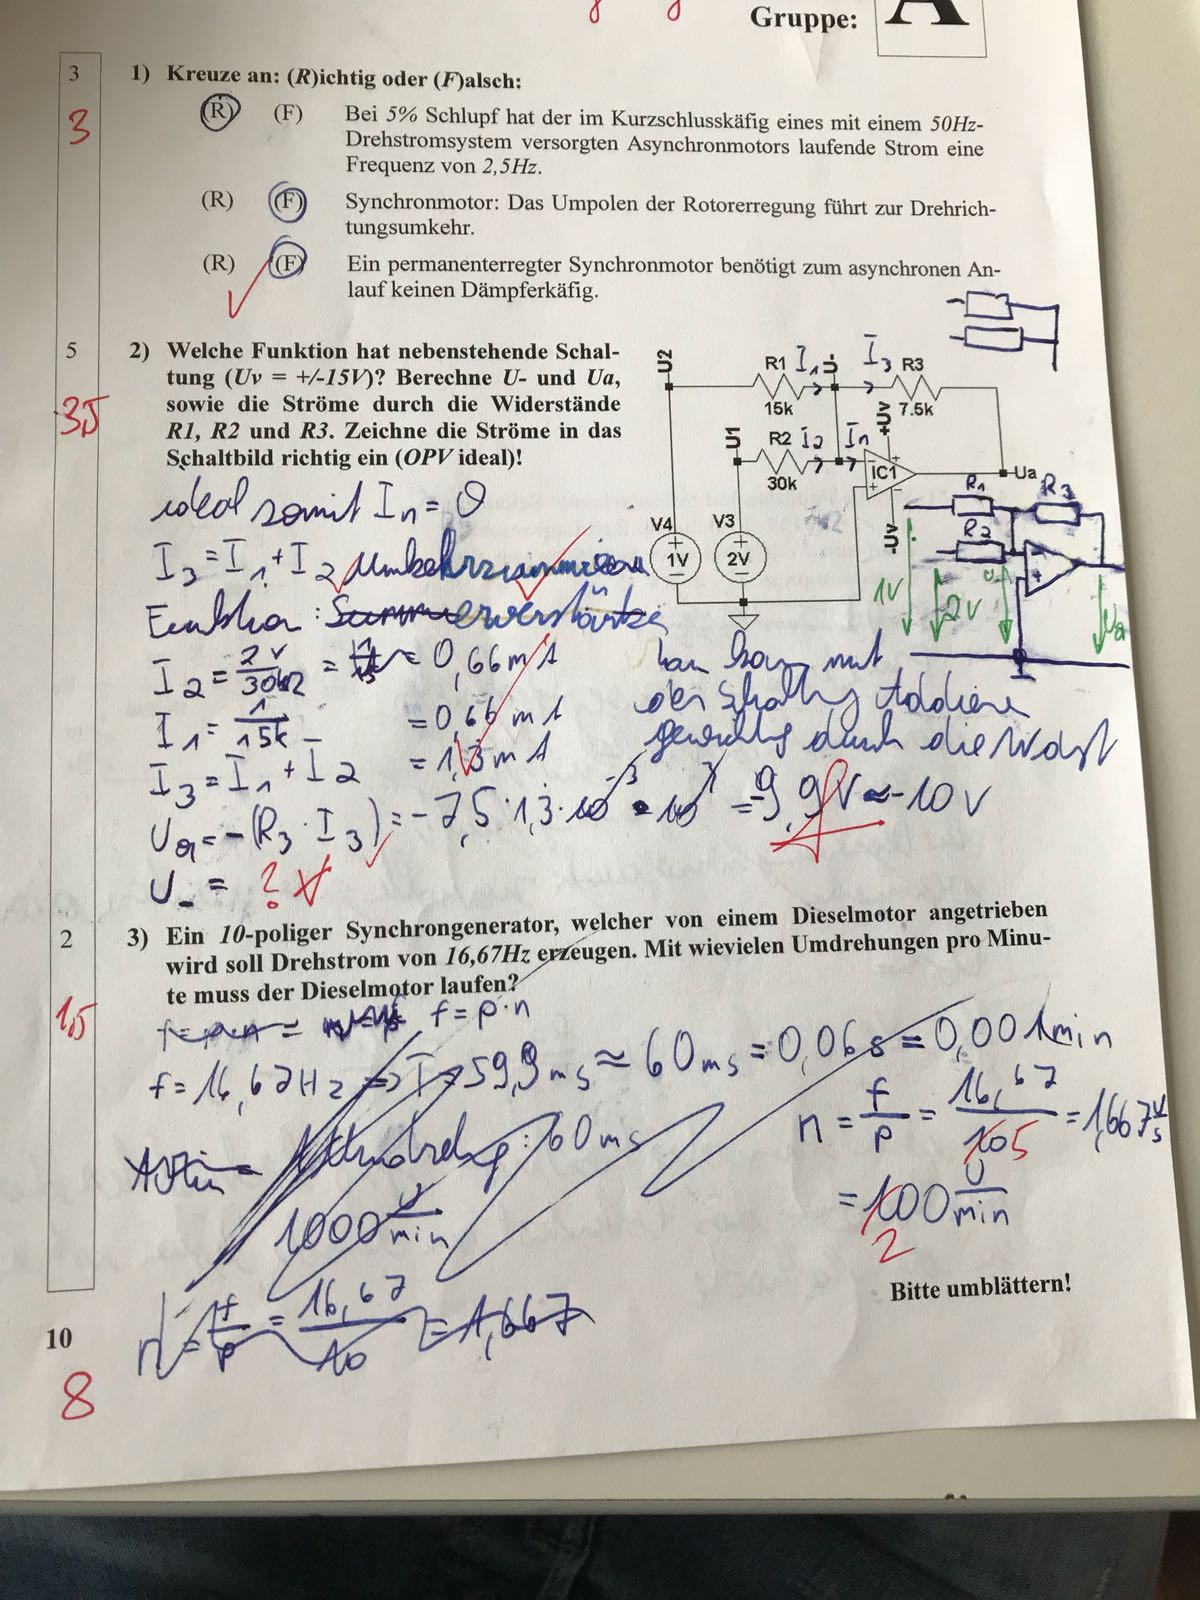 Gruppe: A
3
3
1) Kreuze an: (R)ichtig oder (F)alsch:
(R) (F) Bei 5% Schlupf hat der im Kurzschlusskäfig eines mit einem 50Hz-
Drehstromsystem versorgten Asynchronmotors laufende Strom eine
Frequenz von 2,5Hz.
(R) (F) Synchronmotor: Das Umpolen der Rotorerregung führt zur Drehrich-
tungsumkehr.
(R) (F) Ein permanenterregter Synchronmotor benötigt zum asynchronen An-
lauf keinen Dämpferkäfig.
5
3,5
2) Welche Funktion hat nebenstehende Schal-
tung (Uv = +/-15V)? Berechne U- und Ua,
sowie die Ströme durch die Widerstände
R1, R2 und R3. Zeichne die Ströme in das
Schaltbild richtig ein (OPV ideal)!
U2
R1 I1 U- I3 R3
15k +Uv 7.5k
U1 R2 I2 In
30k IC1 Ua
-Uv
V4 V3
1V 2V
R1 R3
R2
1V 2V U- Ua
ideal somit In = 0
I3 = I1 + I2
Funktion:
I2 = 2V/30kΩ = 0,66mA
I1 = 1/15k = 0,66mA
I3 = I1 + I2 = 1,3mA
Ua = -(R3 · I3) = -7,5 · 1,3 · 10^-3 · 10^3 = -9,9V ≈ -10V
U- = ?
man kann mit
der Schaltung Addieren
gewichtet durch die Widerst
2
1,5
3) Ein 10-poliger Synchrongenerator, welcher von einem Dieselmotor angetrieben
wird soll Drehstrom von 16,67Hz erzeugen. Mit wievielen Umdrehungen pro Minu-
te muss der Dieselmotor laufen?
f = p·n
f = 16,67Hz => T = 59,9ms ≈ 60ms = 0,06s = 0,001min
n = f/p = 16,67/10 5 = 1,667 U/s
: 60ms
1000 U/min
= 100 U/min
2
Bitte umblättern!
n = f/p = 16,67/10 = 1,667
10
8